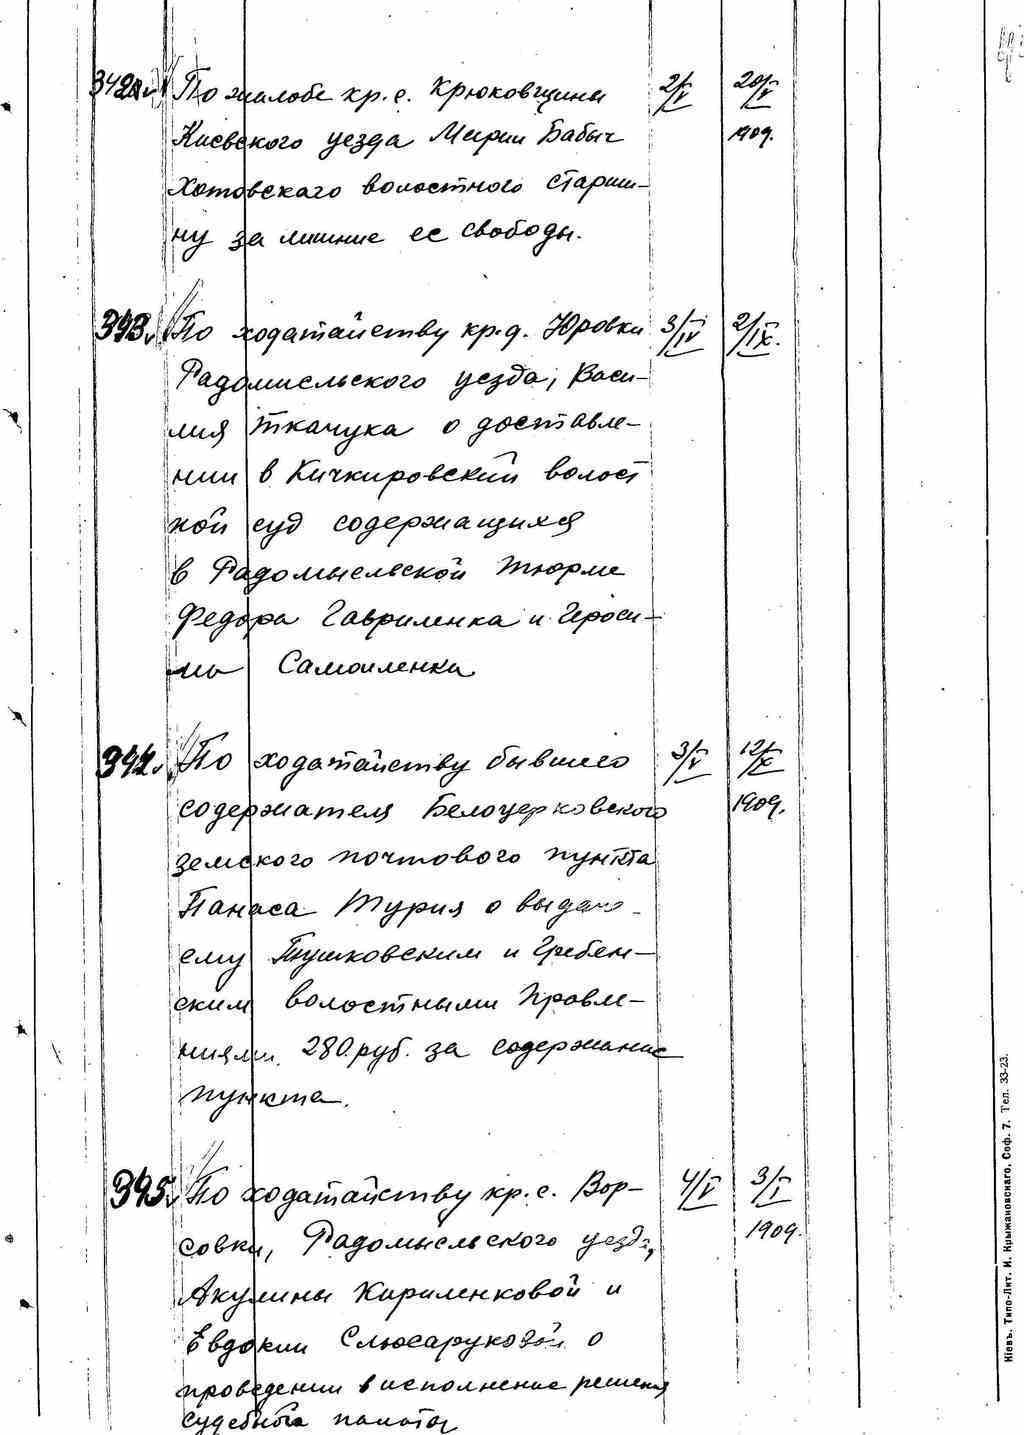 342 По жалобе кр. с. Крюковщины 2/V 20/V
Киевского уезда Марии Бабыч 1909.
Хотовскаго волостного старши-
ну за лишние ее свободы.
343 По ходатайству кр. д. Юровки 3/IV 2/IX.
Радомисльского уезда, Васи-
лия Ткачука о доставле-
нии в Кичкировский волост
ной суд содержащихся
в Радомысльской тюрме
Федора Гавриленка и Гераси-
ма Самойленка
344. По ходатайству бывшего 3/V 12/X
содержателя Белоцерковского 1909.
земского почтового пункта
Панаса Турия о выдаче
ему Трушковским и Гребен-
ским волостными правле-
ниями 280 руб. за содержание
пункта.
345 По ходатайству кр. с. Вор- 4/V 3/I
совки, Радомысльского уезда, 1909.
Акулины Кириленковой и
Евдокии Слюсаруковой о
проведении в исполнение решения
судебной палаты
Кіевъ. Типо-Лит. И. Крыжановскаго, Соф. 7. Тел. 33-23.